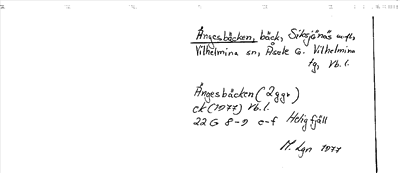 Ängesbäcken, bäck, Siksjönäs
Vilhelmina sn, Åsele G. Vilhelmina
tg, Vb. l.
Ängesbäcken (2 ggr)
ek (1977) Vb. l.
22 G 8-9 e-f Helgfjäll
M. Lgn 1977